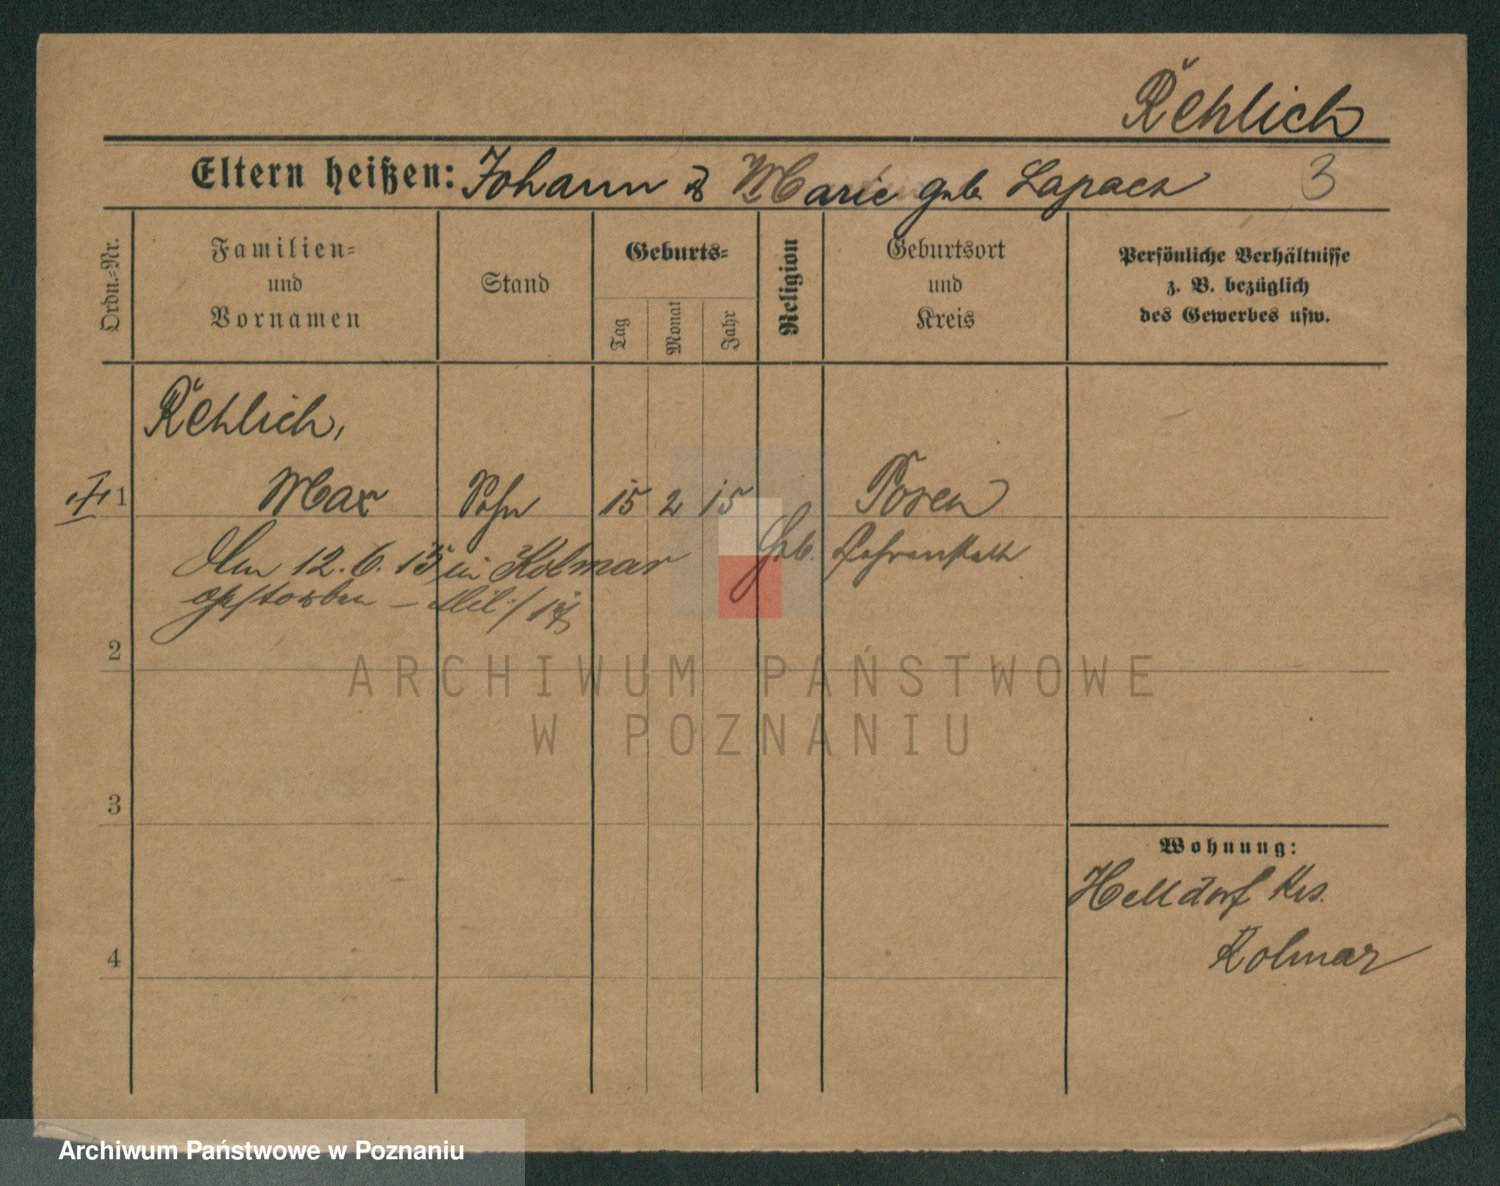 Řehlich
Eltern heißen: Johann & Marie geb Lapacz 3
Ordn.-Nr.
Familien-
und
Vornamen
Stand
Geburts-
Tag
Monat
Jahr
Religion
Geburtsort
und
Kreis
Persönliche Verhältnisse
z. B. bezüglich
des Gewerbes usw.
Řehlich,
1 Max Sohn 15 2 15 Posen
Am 12. 6. 15 in Kolmar
gestorben
Geb.
2
3
4
Wohnung:
Helldorf Krs.
Kolmar
ARCHIWUM PAŃSTWOWE
W POZNANIU
Archiwum Państwowe w Poznaniu